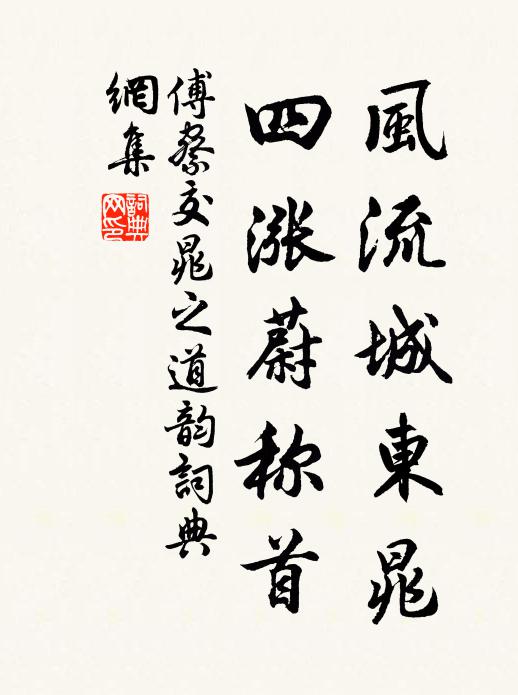 風流城東晁
四漲蔚称首
傅察次晁之道韵詞典
網集
詞典
网印